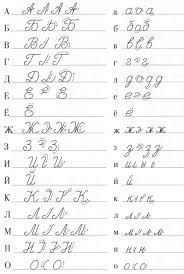 А А А А А а а о а
Б Б Б Б б б о б
В В В В в в в в
Г Г Г Г г г г г
Д Д Д Д д д
Е Е Е е е е е
Ё Ё ё
Ж Ж Ж Ж ж ж ж ж ж
З З З З з з з
И И И И и
Й Й й й
К К К К К к к к к
Л Л Л Л л л л л
М М М М м м м м
Н Н Н Н н н н
О О О о о о